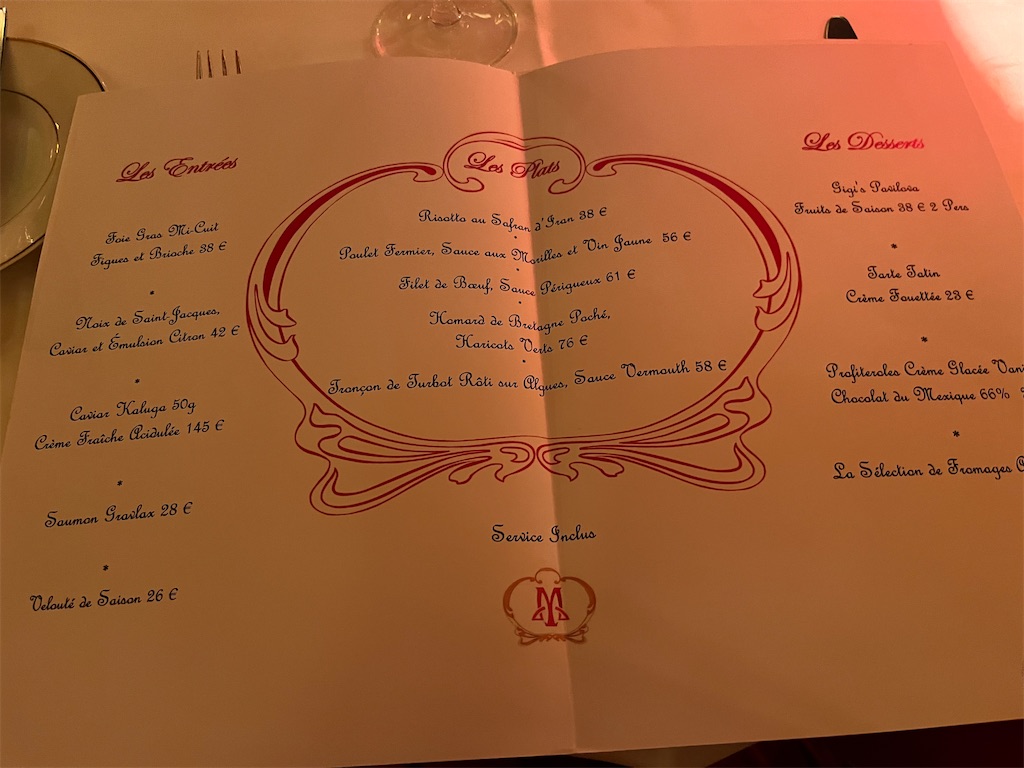 Les Entrées
Foie Gras Mi-Cuit
Figues et Brioche 38 €
*
Noix de Saint-Jacques,
Caviar et Émulsion Citron 42 €
*
Caviar Kaluga 50g
Crème Fraîche Acidulée 145 €
*
Saumon Gravlax 28 €
*
Velouté de Saison 26 €
Les Plats
Risotto au Safran d'Iran 38 €
*
Poulet Fermier, Sauce aux Morilles et Vin Jaune 56 €
*
Filet de Bœuf, Sauce Périgueux 61 €
*
Homard de Bretagne Poché,
Haricots Verts 76 €
*
Tronçon de Turbot Rôti sur Algues, Sauce Vermouth 58 €
Service Inclus
M
Les Desserts
Gigi's Pavilova
Fruits de Saison 38 € 2 Pers
*
Tarte Tatin
Crème Fouettée 23 €
*
Profiteroles Crème Glacée
Chocolat du Mexique 66%
*
La Sélection de Fromages